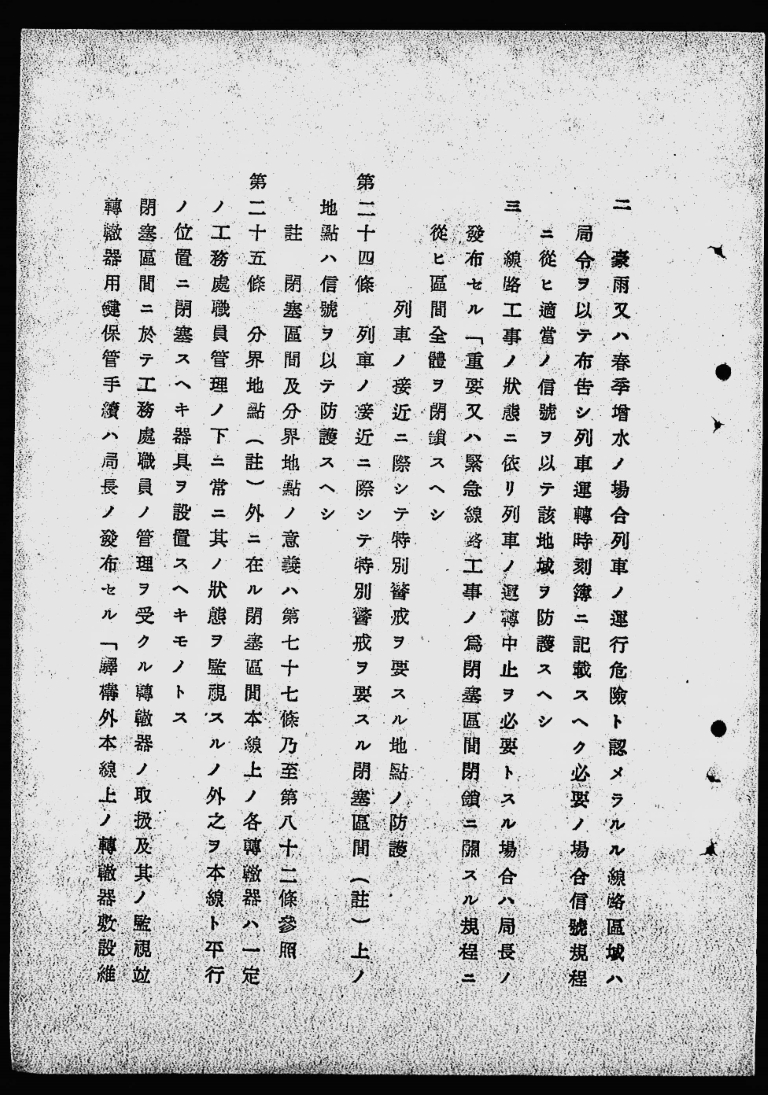 二　豪雨又ハ春季增水ノ場合列車ノ運行危險ト認メラルル線路區域ハ
局令ヲ以テ布告シ列車運轉時刻簿ニ記載スヘク必要ノ場合信號規程
ニ從ヒ適當ノ信號ヲ以テ該地域ヲ防護スヘシ
三　線路工事ノ狀態ニ依リ列車ノ運轉中止ヲ必要トスル場合ハ局長ノ
發布セル「重要又ハ緊急線路工事ノ爲閉塞區間閉鎖ニ關スル規程ニ
從ヒ區間全體ヲ閉鎖スヘシ
列車ノ接近ニ際シテ特別警戒ヲ要スル地點ノ防護
第二十四條　列車ノ接近ニ際シテ特別警戒ヲ要スル閉塞區間（註）上ノ
地點ハ信號ヲ以テ防護スヘシ
註　閉塞區間及分界地點ノ意義ハ第七十七條乃至第八十二條參照
第二十五條　分界地點（註）外ニ在ル閉塞區間本線上ノ各轉轍器ハ一定
ノ工務處職員管理ノ下ニ常ニ其ノ狀態ヲ監視スルノ外之ヲ本線ト平行
ノ位置ニ閉塞スヘキ器具ヲ設置スヘキモノトス
閉塞區間ニ於テ工務處職員ノ管理ヲ受クル轉轍器ノ取扱及其ノ監視竝
轉轍器用鍵保管手續ハ局長ノ發布セル「驛構外本線上ノ轉轍器敷設維